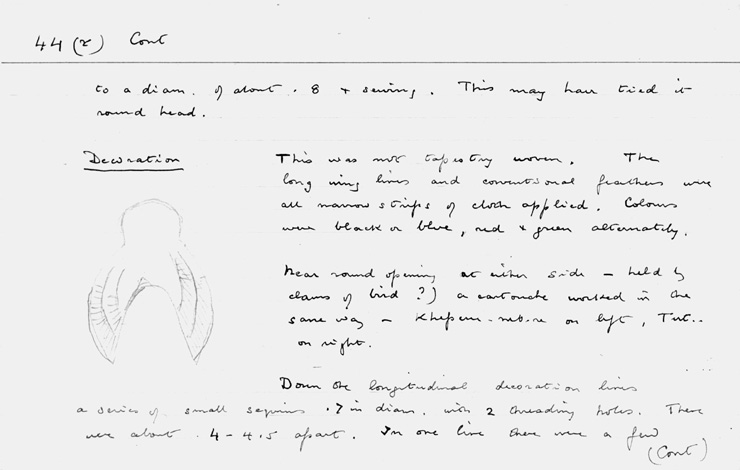 44 (r) Cont
to a diam. of about . 8 + sewing. This may have tied it
round head.
Decoration
This was not tapestry woven. The
long wing lines and conventional feathers were
all narrow strips of cloth applied. Colours
were black or blue, red + green alternately.
Near round opening at either side – held by
claws of bird ?) a cartouche worked in the
same way – Kheperu-neb-re on left, Tut..
on right.
Down the longitudinal decoration lines
a series of small sequins .7 in diam. with 2 threading holes. These
were about .4 – 4.5 apart. In one line there were a few
(Cont)